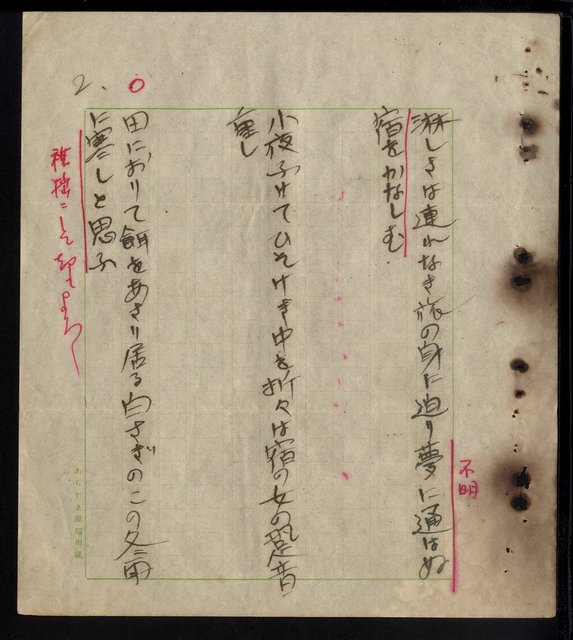 不明
淋しさは連れなき旅の身に迫り夢に通はぬ
宿をかなしむ
小夜ふけてひそけき中を折々は宿の女の跫音
重し
田におりて餌をあさり居る白さぎのこの冬雨
に寒しと思ふ
稚拙にして
2.